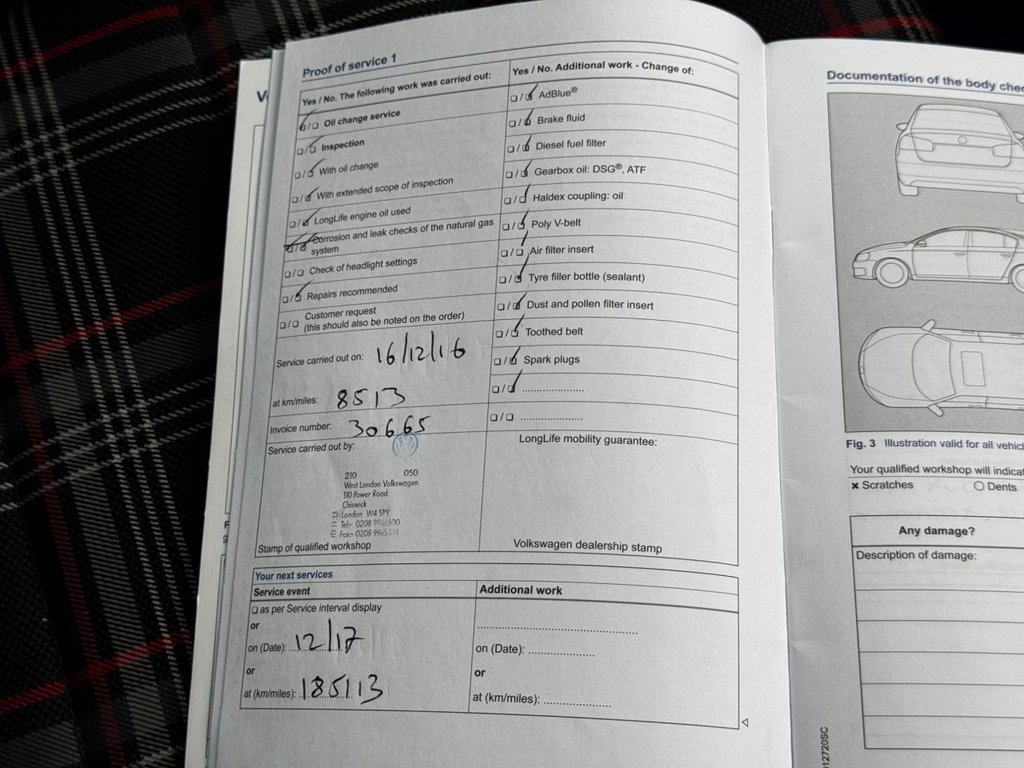 V
Proof of service 1
Yes / No. The following work was carried out:
Oil change service
Inspection
With oil change
With extended scope of inspection
LongLife engine oil used
Corrosion and leak checks of the natural gas
system
Check of headlight settings
Repairs recommended
Customer request
(this should also be noted on the order)
Service carried out on: 16/12/16
at km/miles: 8513
Invoice number: 30665
Service carried out by:
210 050
West London Volkswagen
110 Power Road
Chiswick
London W4 5PY
Tel:-
Fax:-
Stamp of qualified workshop
Yes / No. Additional work - Change of:
AdBlue®
Brake fluid
Diesel fuel filter
Gearbox oil: DSG®, ATF
Haldex coupling: oil
Poly V-belt
Air filter insert
Tyre filler bottle (sealant)
Dust and pollen filter insert
Toothed belt
Spark plugs
LongLife mobility guarantee:
Volkswagen dealership stamp
Your next services
Service event
as per Service interval display
or
on (Date): 12/17
or
at (km/miles): 18513
Additional work
on (Date):
or
at (km/miles):
Documentation of the body chec
Fig. 3 Illustration valid for all vehicl
Your qualified workshop will indicat
× Scratches O Dents
Any damage?
Description of damage:
12720SC